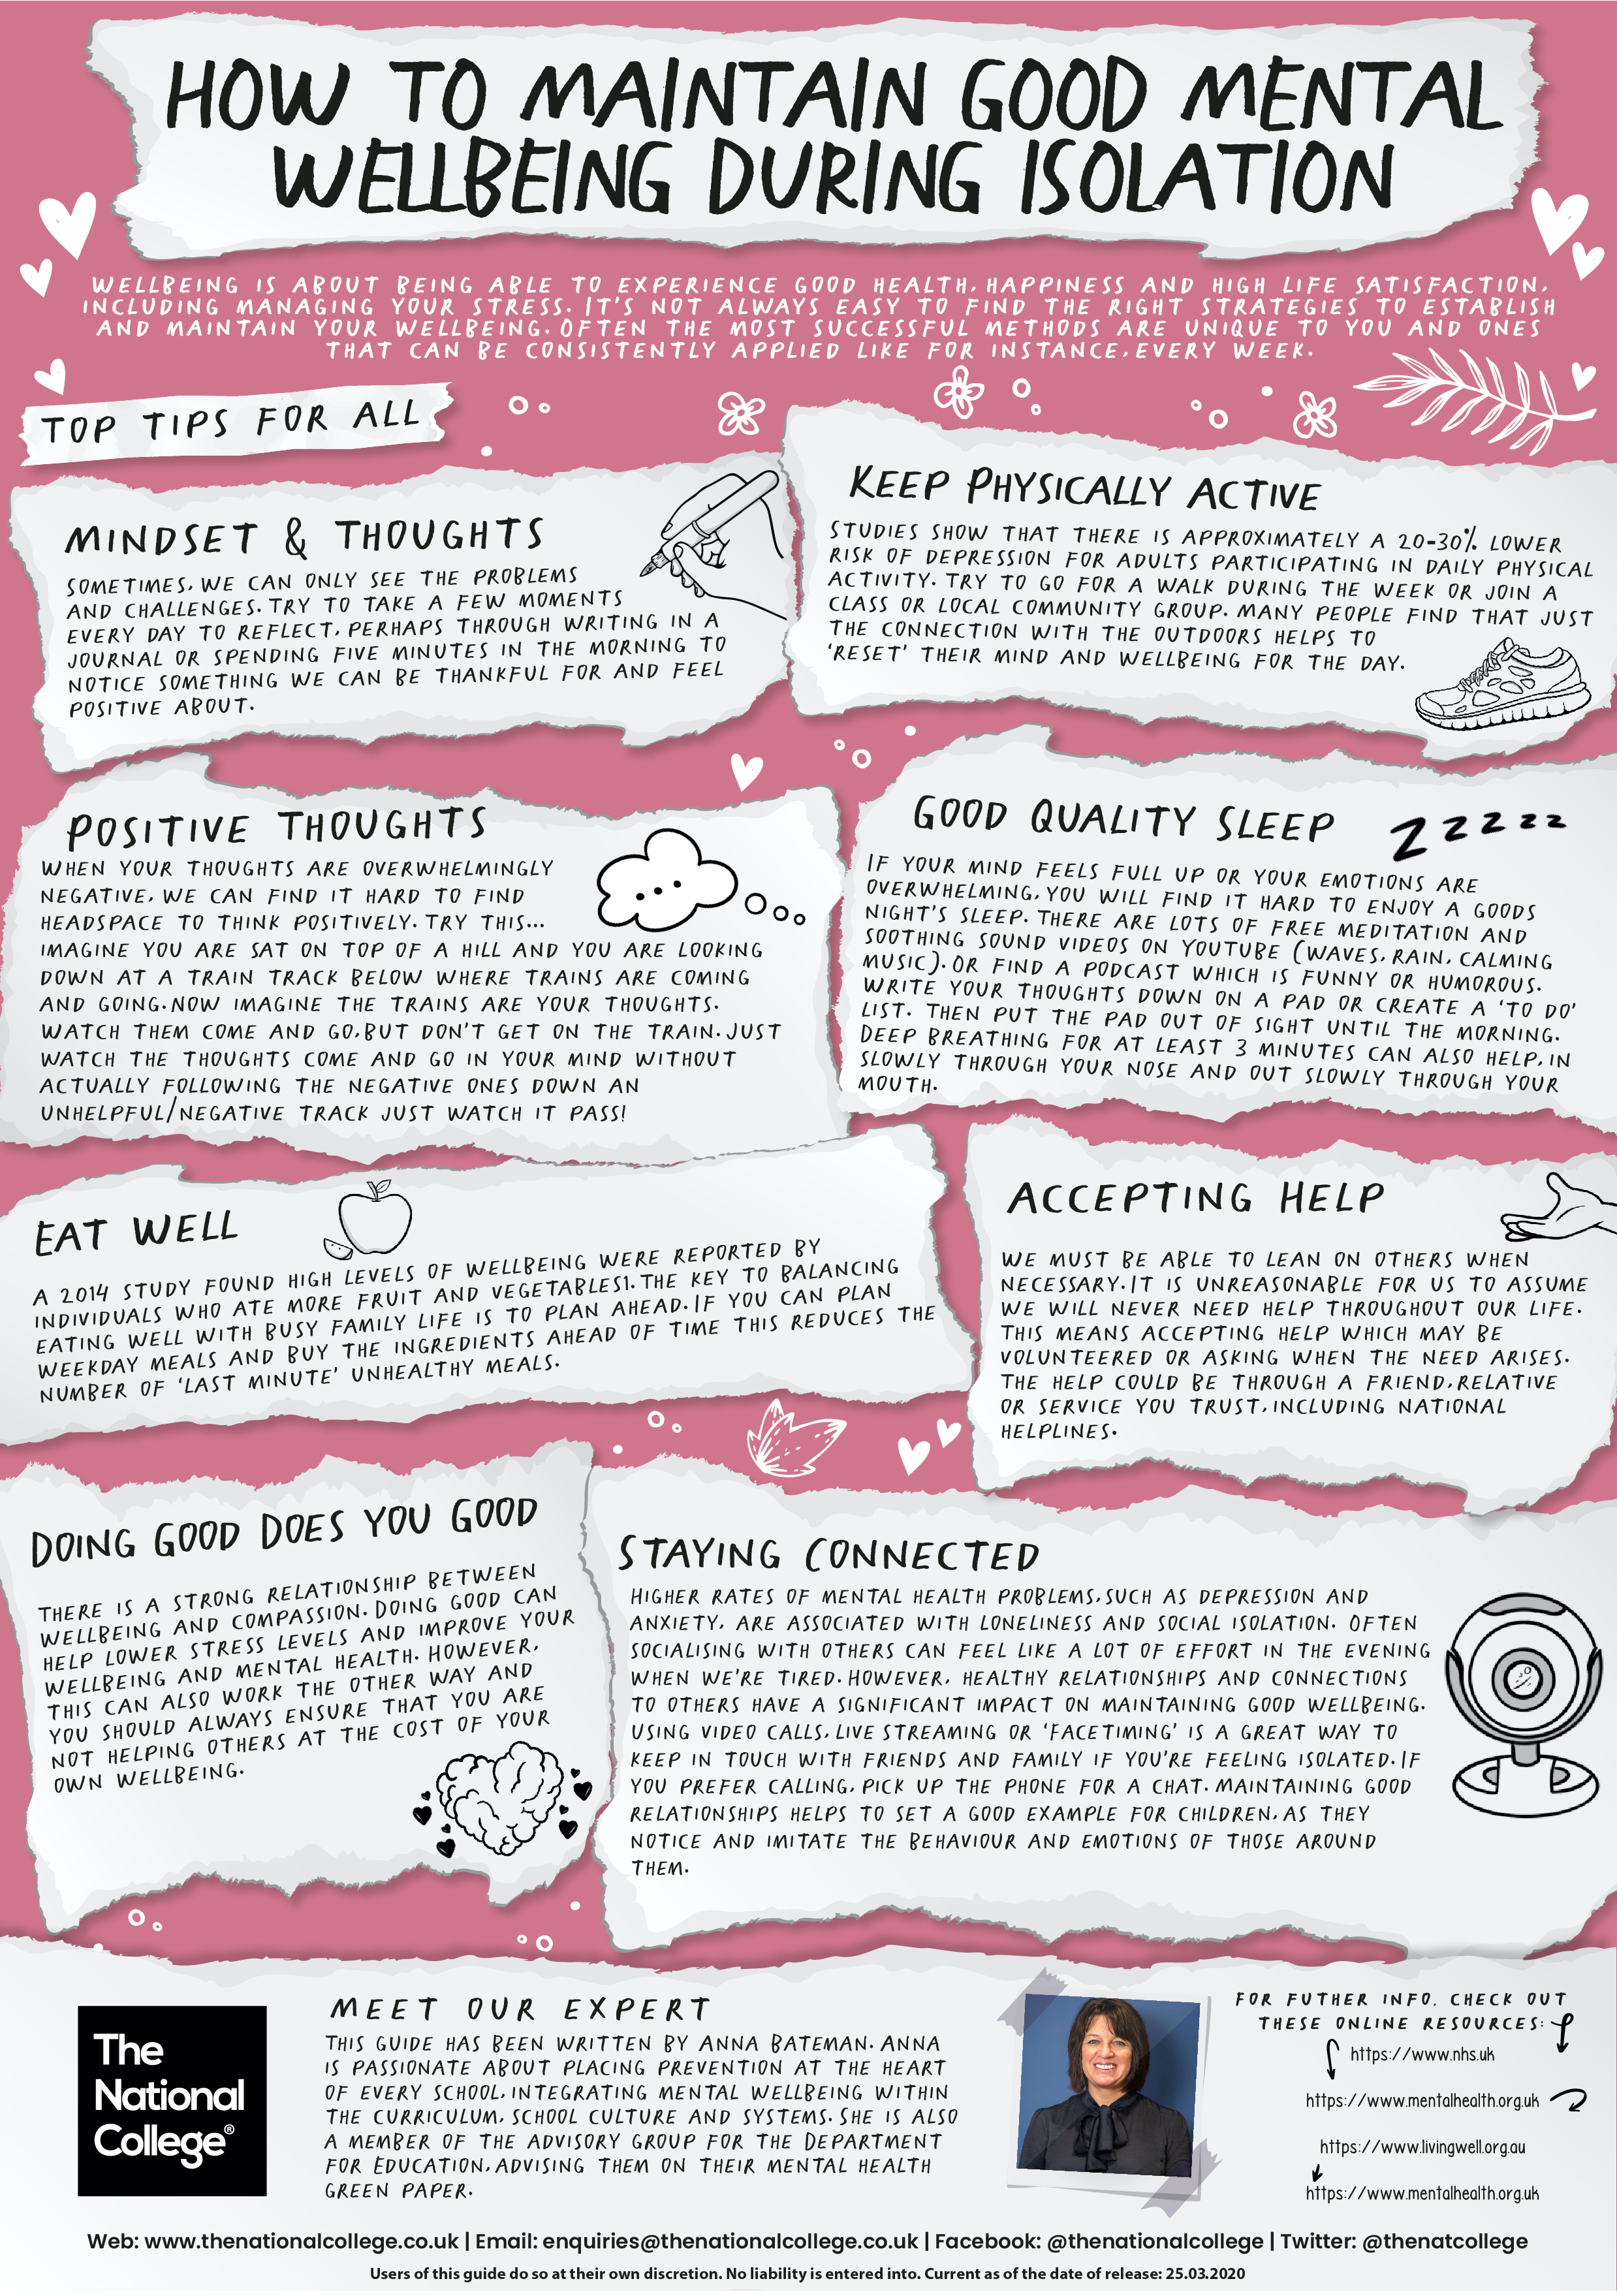 HOW TO MAINTAIN GOOD MENTAL
WELLBEING DURING ISOLATION
WELLBEING IS ABOUT BEING ABLE TO EXPERIENCE GOOD HEALTH, HAPPINESS AND HIGH LIFE SATISFACTION,
INCLUDING MANAGING YOUR STRESS. IT'S NOT ALWAYS EASY TO FIND THE RIGHT STRATEGIES TO ESTABLISH
AND MAINTAIN YOUR WELLBEING. OFTEN THE MOST SUCCESSFUL METHODS ARE UNIQUE TO YOU AND ONES
THAT CAN BE CONSISTENTLY APPLIED LIKE FOR INSTANCE, EVERY WEEK.
TOP TIPS FOR ALL
MINDSET & THOUGHTS
SOMETIMES, WE CAN ONLY SEE THE PROBLEMS
AND CHALLENGES. TRY TO TAKE A FEW MOMENTS
EVERY DAY TO REFLECT, PERHAPS THROUGH WRITING IN A
JOURNAL OR SPENDING FIVE MINUTES IN THE MORNING TO
NOTICE SOMETHING WE CAN BE THANKFUL FOR AND FEEL
POSITIVE ABOUT.
KEEP PHYSICALLY ACTIVE
STUDIES SHOW THAT THERE IS APPROXIMATELY A 20-30% LOWER
RISK OF DEPRESSION FOR ADULTS PARTICIPATING IN DAILY PHYSICAL
ACTIVITY. TRY TO GO FOR A WALK DURING THE WEEK OR JOIN A
CLASS OR LOCAL COMMUNITY GROUP. MANY PEOPLE FIND THAT JUST
THE CONNECTION WITH THE OUTDOORS HELPS TO
'RESET' THEIR MIND AND WELLBEING FOR THE DAY.
POSITIVE THOUGHTS
WHEN YOUR THOUGHTS ARE OVERWHELMINGLY
NEGATIVE, WE CAN FIND IT HARD TO FIND
HEADSPACE TO THINK POSITIVELY. TRY THIS...
IMAGINE YOU ARE SAT ON TOP OF A HILL AND YOU ARE LOOKING
DOWN AT A TRAIN TRACK BELOW WHERE TRAINS ARE COMING
AND GOING. NOW IMAGINE THE TRAINS ARE YOUR THOUGHTS.
WATCH THEM COME AND GO, BUT DON'T GET ON THE TRAIN. JUST
WATCH THE THOUGHTS COME AND GO IN YOUR MIND WITHOUT
ACTUALLY FOLLOWING THE NEGATIVE ONES DOWN AN
UNHELPFUL/NEGATIVE TRACK JUST WATCH IT PASS!
GOOD QUALITY SLEEP
ZZZZZ
IF YOUR MIND FEELS FULL UP OR YOUR EMOTIONS ARE
OVERWHELMING, YOU WILL FIND IT HARD TO ENJOY A GOODS
NIGHT'S SLEEP. THERE ARE LOTS OF FREE MEDITATION AND
SOOTHING SOUND VIDEOS ON YOUTUBE (WAVES, RAIN, CALMING
MUSIC). OR FIND A PODCAST WHICH IS FUNNY OR HUMOROUS.
WRITE YOUR THOUGHTS DOWN ON A PAD OR CREATE A 'TO DO'
LIST. THEN PUT THE PAD OUT OF SIGHT UNTIL THE MORNING.
DEEP BREATHING FOR AT LEAST 3 MINUTES CAN ALSO HELP, IN
SLOWLY THROUGH YOUR NOSE AND OUT SLOWLY THROUGH YOUR
MOUTH.
EAT WELL
A 2014 STUDY FOUND HIGH LEVELS OF WELLBEING WERE REPORTED BY
INDIVIDUALS WHO ATE MORE FRUIT AND VEGETABLES1. THE KEY TO BALANCING
EATING WELL WITH BUSY FAMILY LIFE IS TO PLAN AHEAD. IF YOU CAN PLAN
WEEKDAY MEALS AND BUY THE INGREDIENTS AHEAD OF TIME THIS REDUCES THE
NUMBER OF 'LAST MINUTE' UNHEALTHY MEALS.
ACCEPTING HELP
WE MUST BE ABLE TO LEAN ON OTHERS WHEN
NECESSARY. IT IS UNREASONABLE FOR US TO ASSUME
WE WILL NEVER NEED HELP THROUGHOUT OUR LIFE.
THIS MEANS ACCEPTING HELP WHICH MAY BE
VOLUNTEERED OR ASKING WHEN THE NEED ARISES.
THE HELP COULD BE THROUGH A FRIEND, RELATIVE
OR SERVICE YOU TRUST, INCLUDING NATIONAL
HELPLINES.
DOING GOOD DOES YOU GOOD
THERE IS A STRONG RELATIONSHIP BETWEEN
WELLBEING AND COMPASSION. DOING GOOD CAN
HELP LOWER STRESS LEVELS AND IMPROVE YOUR
WELLBEING AND MENTAL HEALTH. HOWEVER,
THIS CAN ALSO WORK THE OTHER WAY AND
YOU SHOULD ALWAYS ENSURE THAT YOU ARE
NOT HELPING OTHERS AT THE COST OF YOUR
OWN WELLBEING.
STAYING CONNECTED
HIGHER RATES OF MENTAL HEALTH PROBLEMS, SUCH AS DEPRESSION AND
ANXIETY, ARE ASSOCIATED WITH LONELINESS AND SOCIAL ISOLATION. OFTEN
SOCIALISING WITH OTHERS CAN FEEL LIKE A LOT OF EFFORT IN THE EVENING
WHEN WE'RE TIRED. HOWEVER, HEALTHY RELATIONSHIPS AND CONNECTIONS
TO OTHERS HAVE A SIGNIFICANT IMPACT ON MAINTAINING GOOD WELLBEING.
USING VIDEO CALLS, LIVE STREAMING OR 'FACETIMING' IS A GREAT WAY TO
KEEP IN TOUCH WITH FRIENDS AND FAMILY IF YOU'RE FEELING ISOLATED. IF
YOU PREFER CALLING, PICK UP THE PHONE FOR A CHAT. MAINTAINING GOOD
RELATIONSHIPS HELPS TO SET A GOOD EXAMPLE FOR CHILDREN, AS THEY
NOTICE AND IMITATE THE BEHAVIOUR AND EMOTIONS OF THOSE AROUND
THEM.
The
National
College®
MEET OUR EXPERT
THIS GUIDE HAS BEEN WRITTEN BY ANNA BATEMAN. ANNA
IS PASSIONATE ABOUT PLACING PREVENTION AT THE HEART
OF EVERY SCHOOL, INTEGRATING MENTAL WELLBEING WITHIN
THE CURRICULUM, SCHOOL CULTURE AND SYSTEMS. SHE IS ALSO
A MEMBER OF THE ADVISORY GROUP FOR THE DEPARTMENT
FOR EDUCATION, ADVISING THEM ON THEIR MENTAL HEALTH
GREEN PAPER.
FOR FUTHER INFO, CHECK OUT
THESE ONLINE RESOURCES:
https://www.nhs.uk
https://www.mentalhealth.org.uk
https://www.livingwell.org.au
https://www.mentalhealth.org.uk
Web: www.thenationalcollege.co.uk | Email: enquiries@thenationalcollege.co.uk | Facebook: @thenationalcollege | Twitter: @thenatcollege
Users of this guide do so at their own discretion. No liability is entered into. Current as of the date of release: 25.03.2020